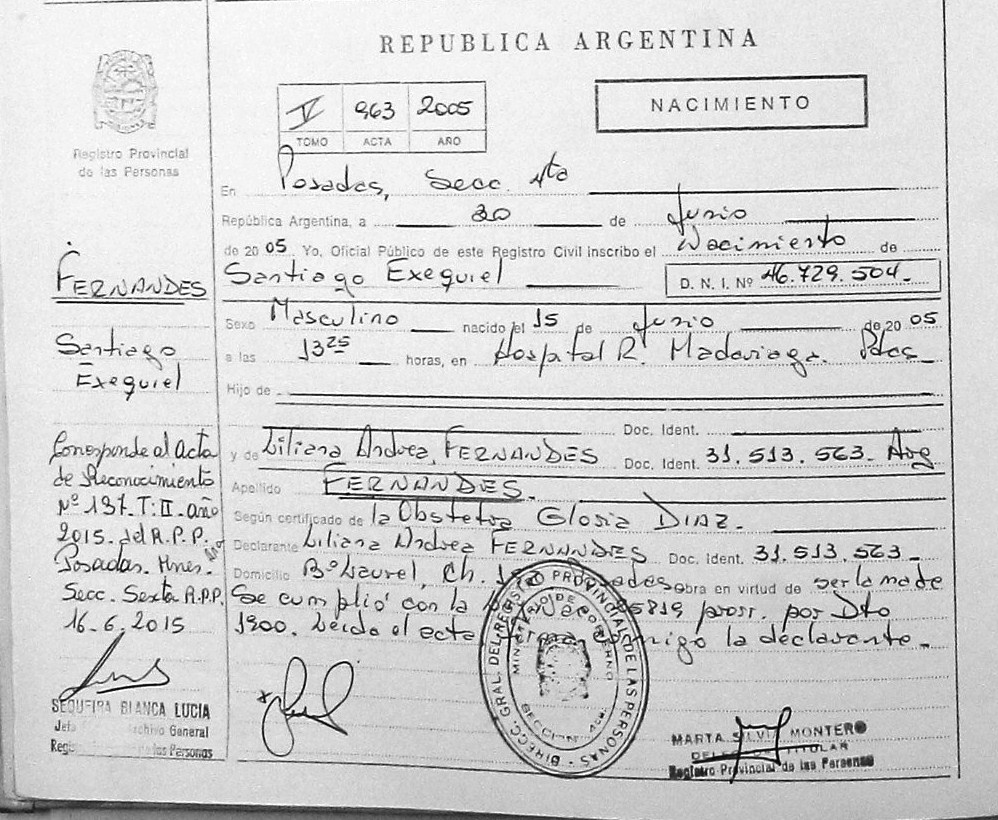 REPUBLICA ARGENTINA
V 963 2005
TOMO ACTA AÑO
NACIMIENTO
Registro Provincial
de las Personas
En Posadas, Secc. 4ta
República Argentina, a 30 de Junio
de 2005 Yo, Oficial Público de este Registro Civil inscribo el Nacimiento de
Santiago Exequiel D. N. I. Nº 46.729.504.-
Sexo Masculino nacido el 15 de Junio de 2005
a las 13 25 horas, en Hospital R. Madariaga. Pdas
Hijo de
Doc. Ident.
y de Liliana Andrea FERNANDES Doc. Ident. 31.513.563. Arg
Apellido FERNANDES.
Según certificado de la Obstetra Gloria DIAZ.
Declarante Liliana Andrea FERNANDES Doc. Ident. 31.513.563.
Domicilio Bº Laurel, Ch. obra en virtud de ser la madre
Se cumplió con la prorr. por Dto
1900. Leído el acta la declarante.
FERNANDES
Santiago
Exequiel
Corresponde al Acta
de Reconocimiento
Nº 137. T: II. año
2015. del R.P.P.
Posadas. Mnes.
Secc. Sexta R.P.P.
16.6.2015
SEQUEIRA BLANCA LUCIA
Jefa Archivo General
Registro de las Personas
DIRECC. GRAL. DEL REGISTRO PROVINCIAL DE LAS PERSONAS
MINISTERIO DE GOBIERNO
SECCION 4ta
MARTA SILVIA MONTERO
DELEGADA TITULAR
Registro Provincial de las Personas